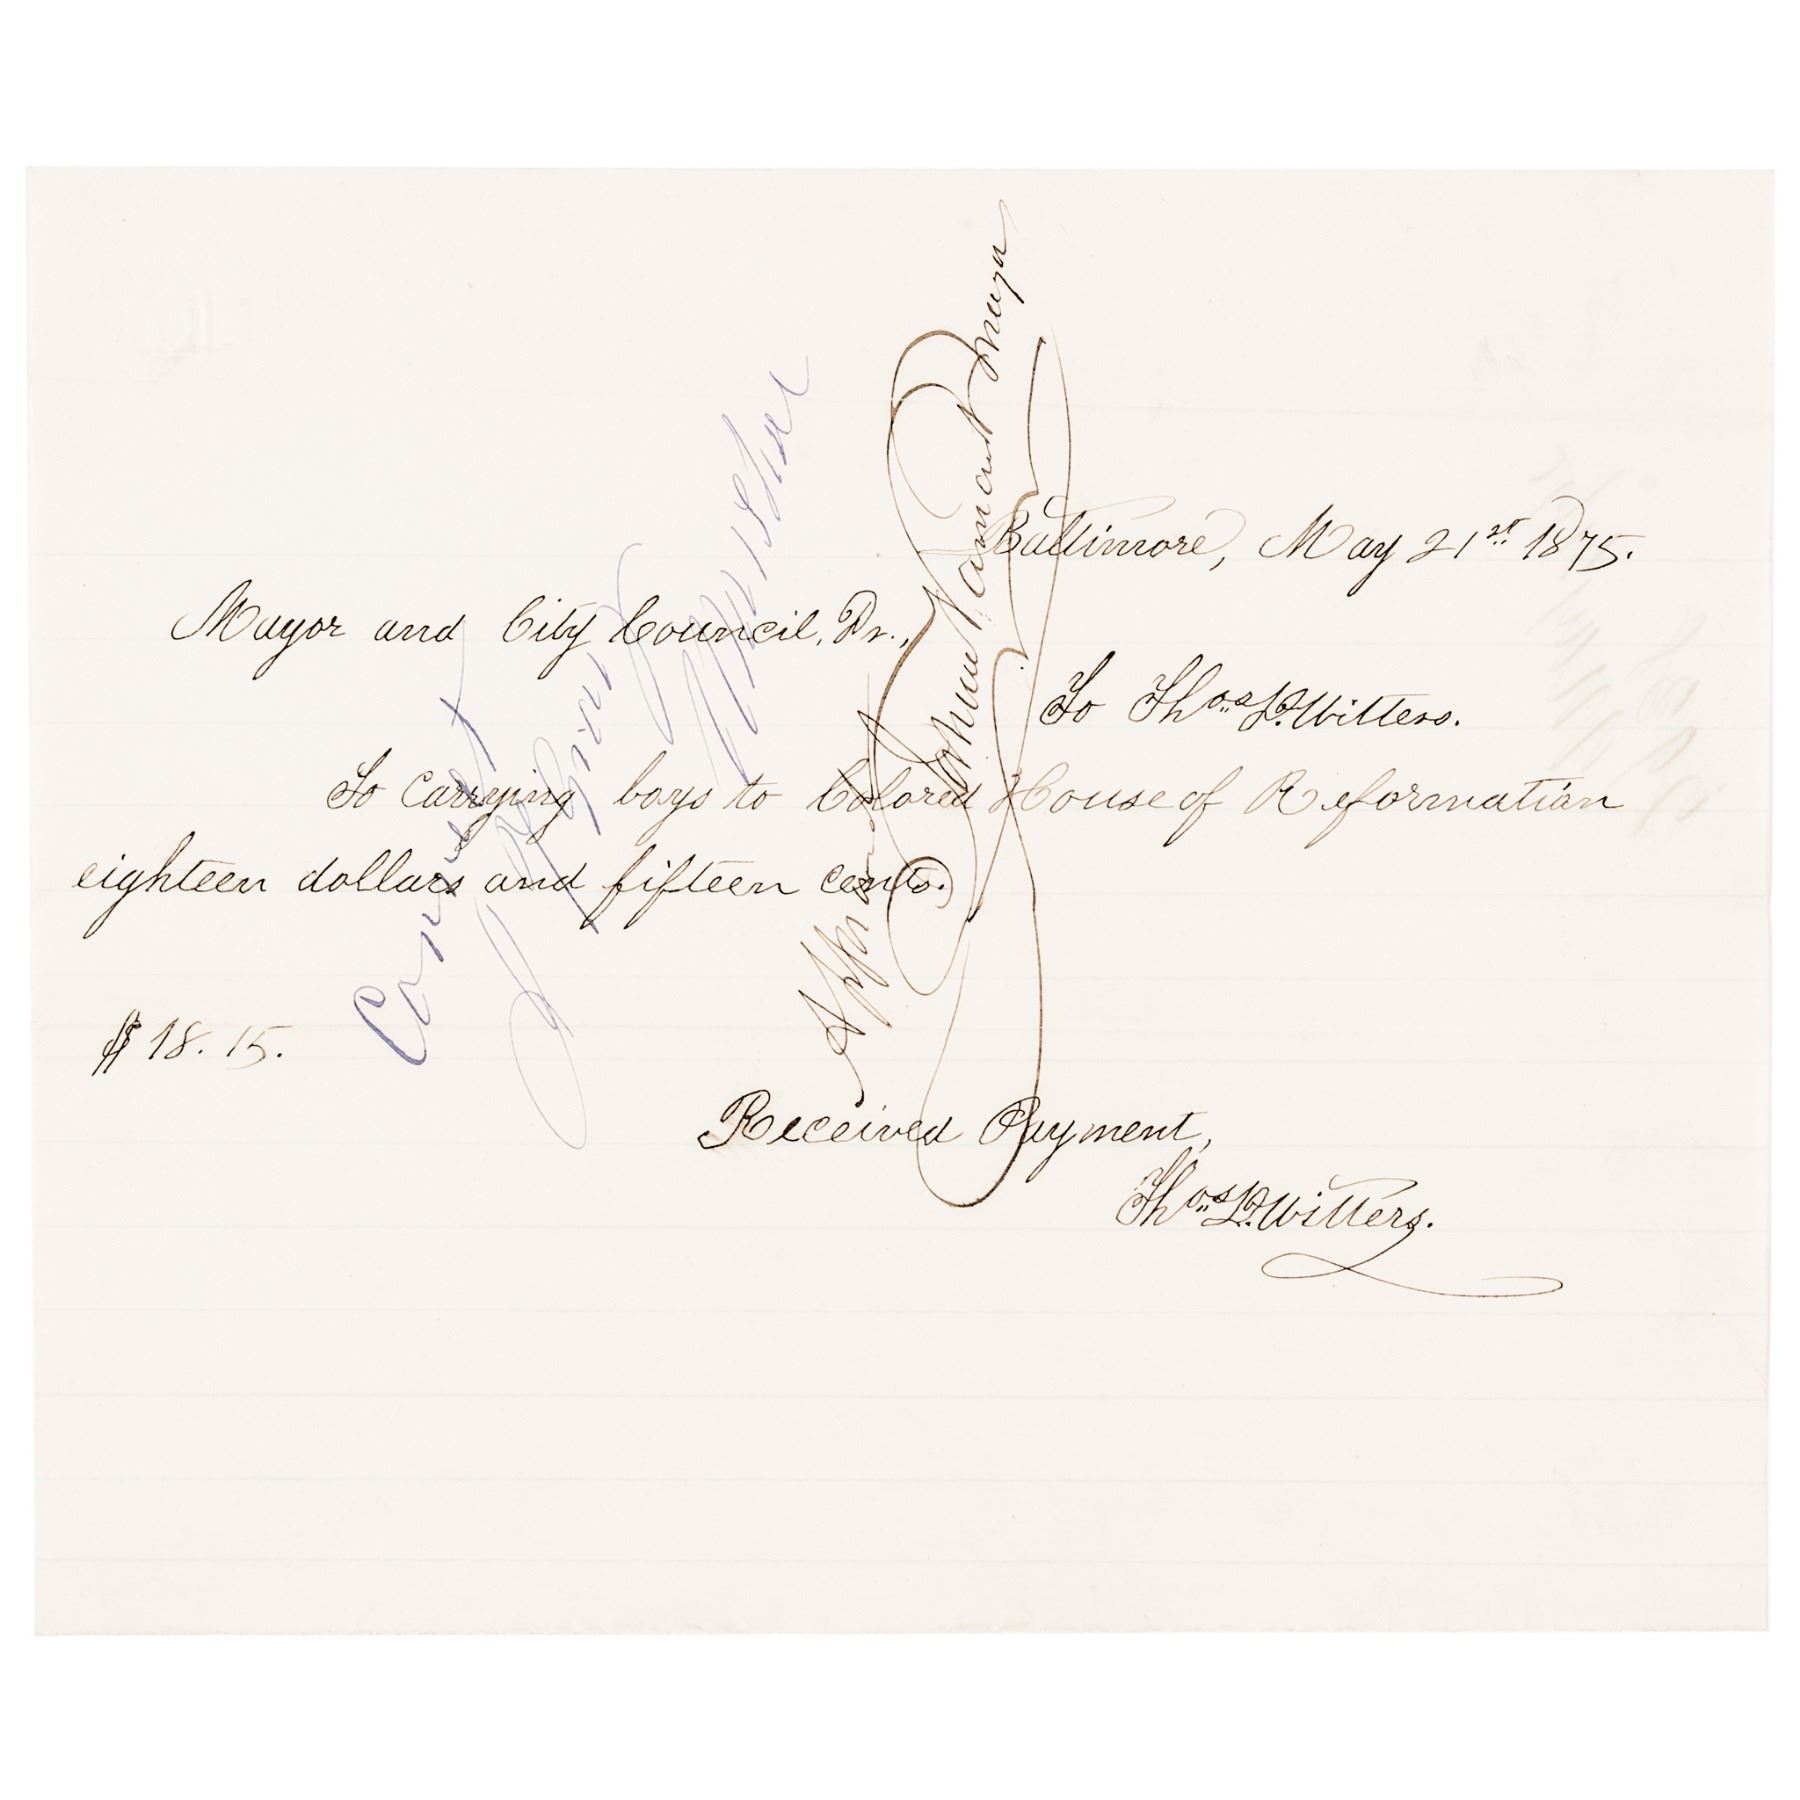 Baltimore, May 21st 1875.
Mayor and City Council, Dr.,
To Thos. L. Witters.
To Carrying boys to Colored House of Reformation
eighteen dollars and fifteen cents.
$18.15.
Received Payment,
Thos. L. Witters.
Correct
Approved
Joshua Vansant Mayor